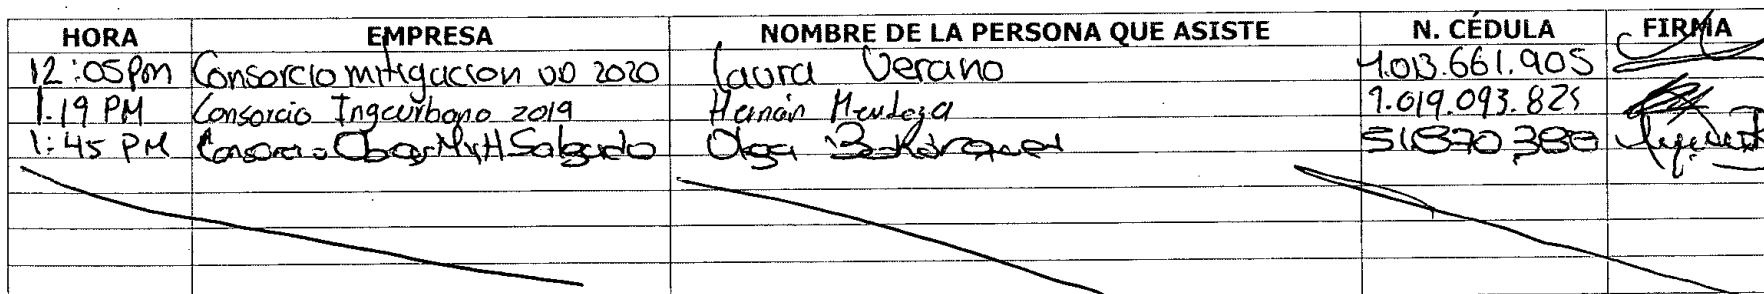 HORA EMPRESA NOMBRE DE LA PERSONA QUE ASISTE N. CÉDULA FIRMA
12:05pm Consorcio mitigaccion UD 2020 Laura Verano 1.013.661.905
1.19 PM Consorcio Ingeurbano 2019 Hernán Mendoza 1.019.093.825
1:45 PM Consorcio Salgado Olga 51870388